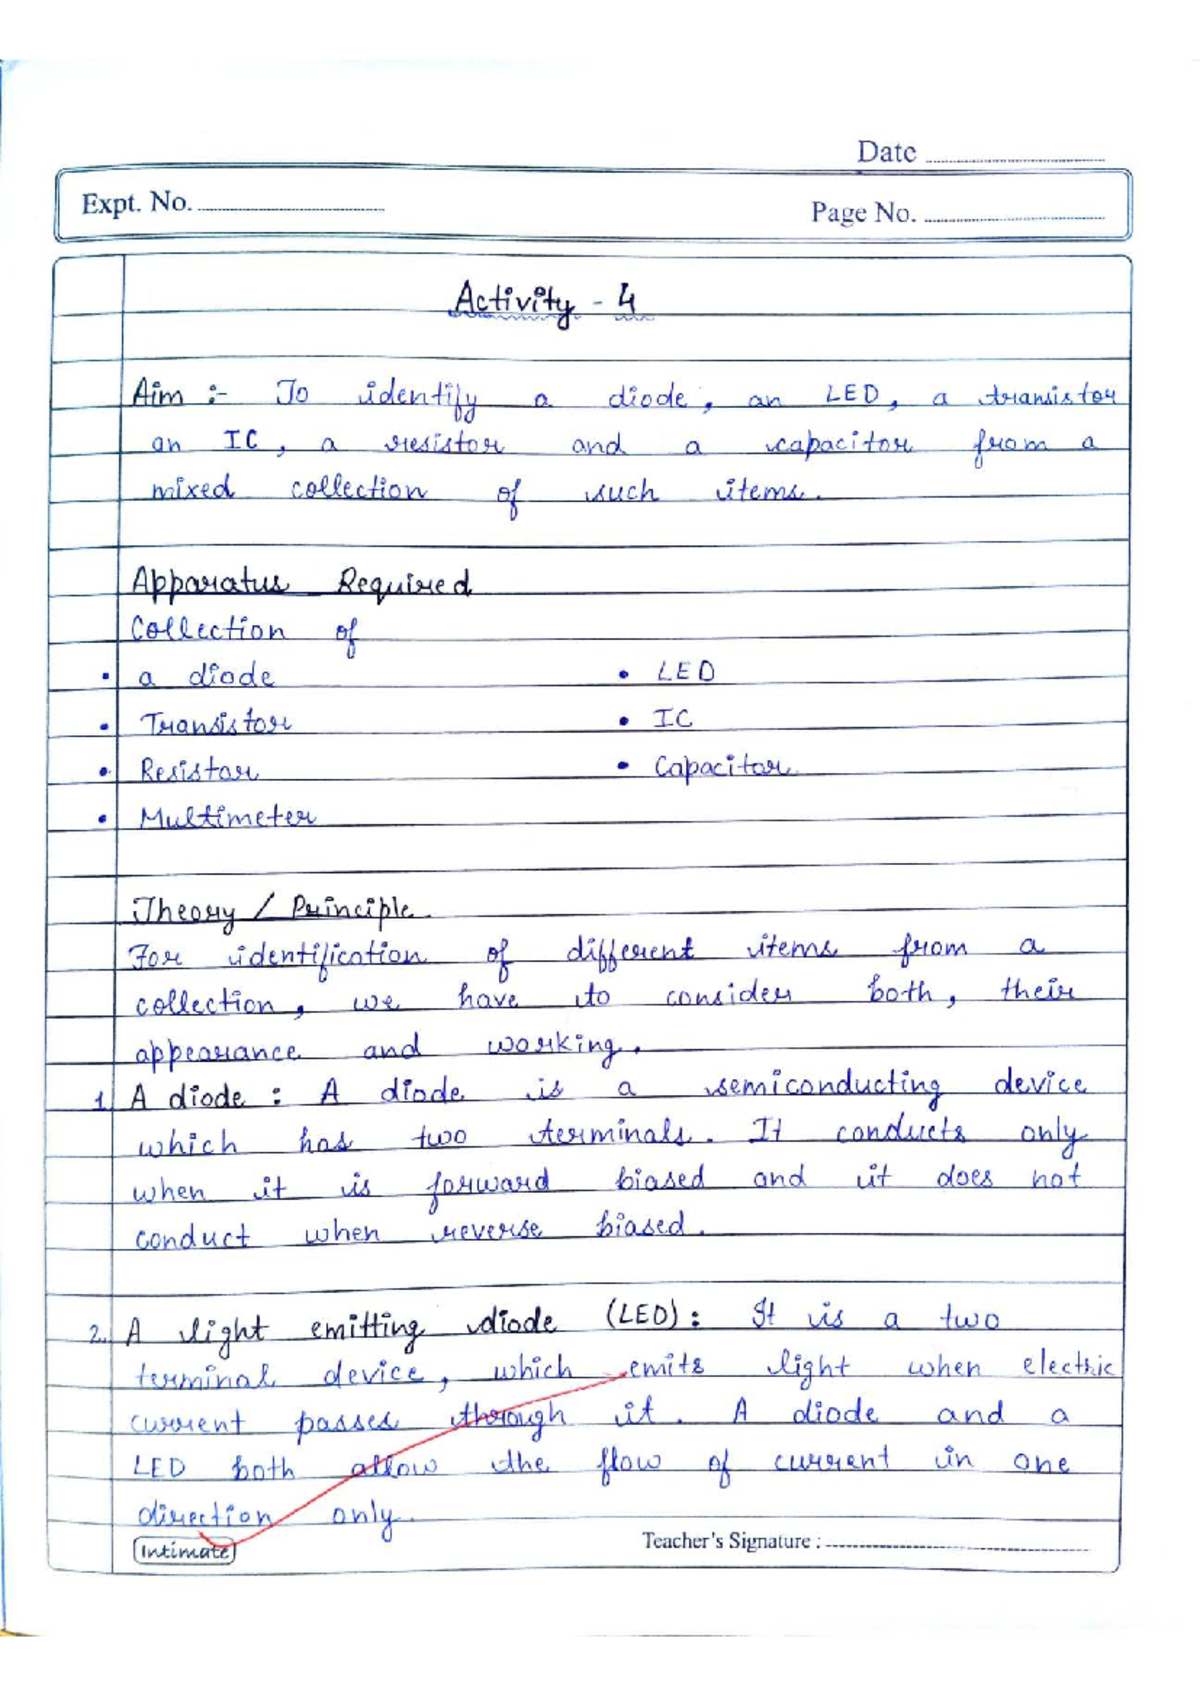 Date
Expt. No.
Page No.
Activity - 4
Aim :- To identify a diode, an LED, a transistor
an IC, a resistor and a capacitor from a
mixed collection of such items.
Apparatus Required
Collection of
• a diode • LED
• Transistor • IC
• Resistor • Capacitor
• Multimeter
Theory / Principle
For identification of different items from a
collection, we have to consider both, their
appearance and working.
1. A diode : A diode is a semiconducting device
which has two terminals. It conducts only
when it is forward biased and it does not
conduct when reverse biased.
2. A light emitting diode (LED) : It is a two
terminal device, which emits light when electric
current passes through it. A diode and a
LED both allow the flow of current in one
direction only.
Intimate
Teacher's Signature :